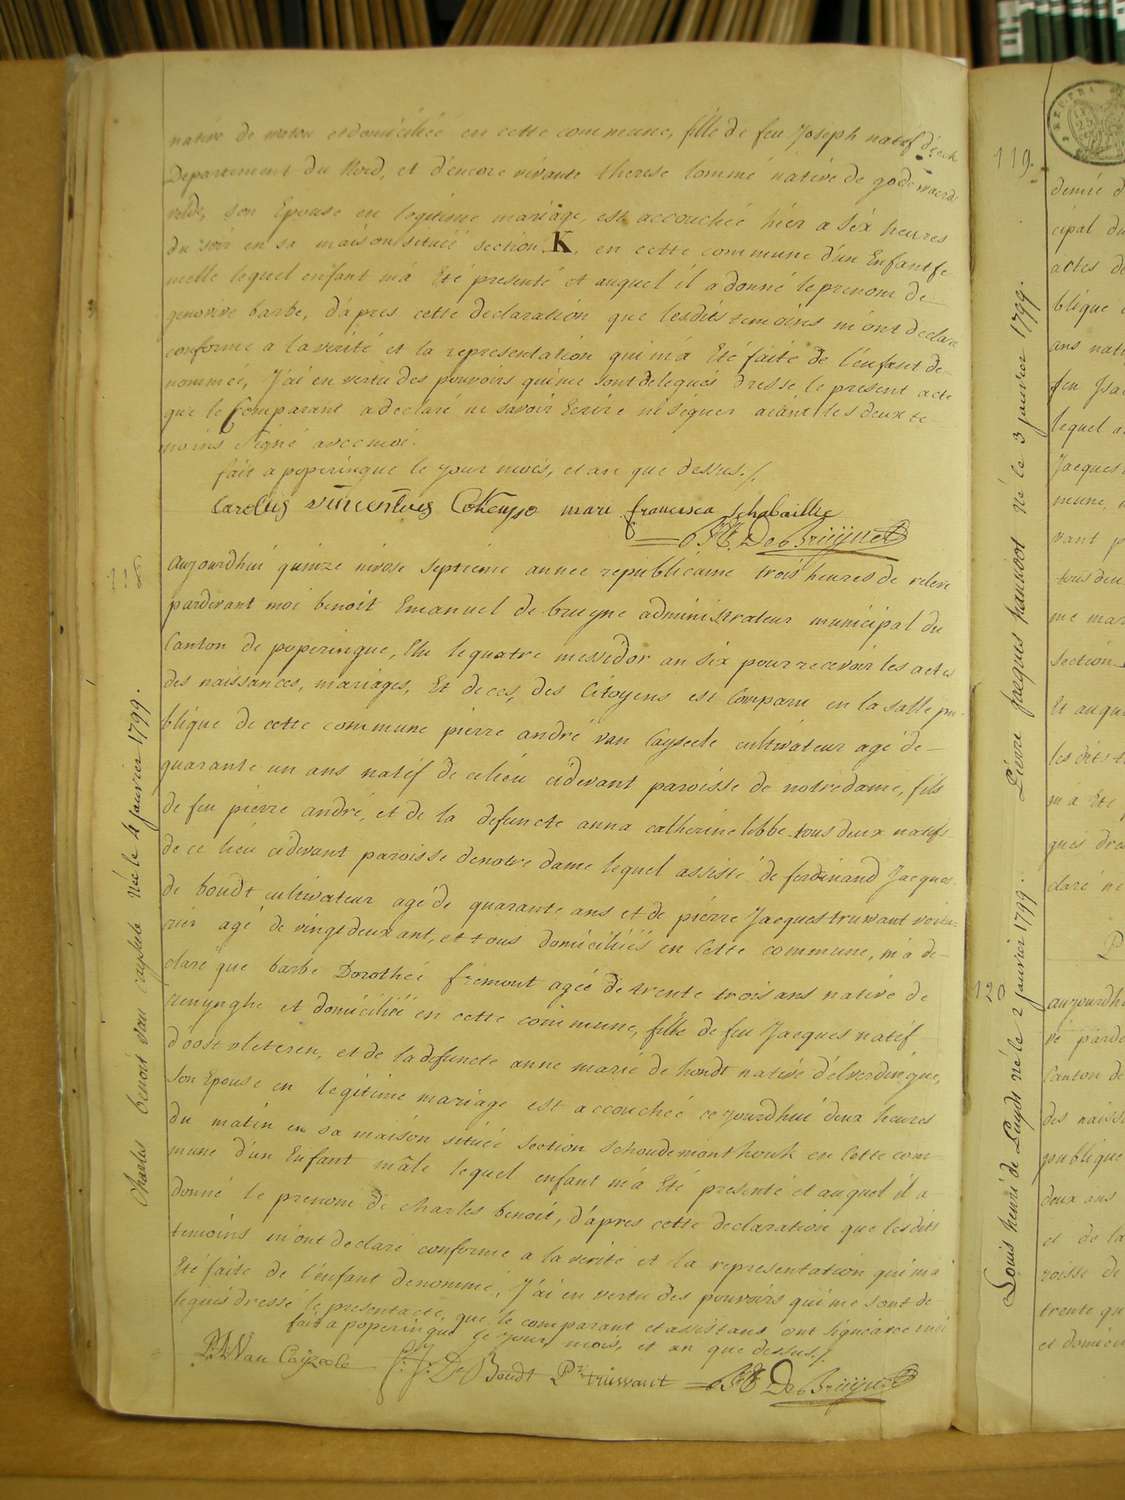 native de watou et domiciliée en cette commune, fille de feu Joseph natif d'
Departement du Nord, et d'encore vivante therese tommé native de godewaers
velde, son Epouse en legitime mariage, est accouchée hier a six heures
du soir en sa maison située section K. en cette commune d'un Enfant fe
melle lequel enfant m'a Eté presenté et auquel il a donné le prenom de
genovive barbe, d'apres cette declaration que lesdits temoins m'ont declaré
conforme a la verité et la representation qui m'a Eté faite de l'enfant de
nommée, J'ai en vertu des pouvoirs qui me sont delegués dressé le present acte
que le Comparant a declaré ne savoir Ecrire ni signer aiant les deux te
moins signé avec moi.
fait a poperingue le jour mois, et an que dessus./.
Carolus vincentius mari francisca schabaillie
B E De Bruyne
118
aujourdhui quinze nivose septieme annee republicaine trois heures de relevé
pardevant moi benoit Emanuel de bruyne administrateur municipal du
Canton de poperingue, Elu le quatre messidor an six pour recevoir les actes
des naissances, mariages, Et deces, des Citoyens est Comparu en la salle pu-
blique de cette commune pierre andré van Cayseele cultivateur agé de
quarante un ans natif de ce lieu cidevant paroisse de notre dame, fils
de feu pierre andré, et de la defuncte anna catherine lebbe tous deux natifs
de ce lieu cidevant paroisse de notre dame lequel assisté de ferdinand Jacques
de boudt cultivateur agé de quarante ans et de pierre Jacques truwant voitu-
rier agé de vingt deux ant, et tous domiciliés en Cette commune, m'a de-
claré que barbe Dorothée fremout agée de trente trois ans native de
renynghe et domiciliée en cette commune, fille de feu Jacques natif
d'oostvleteren, et de la defuncte anne marie de hondt native d'elverdingue,
son Epouse en legitime mariage est accouchée ce jourdhui deux heures
du matin en sa maison située section schoudemonthouk en Cette com
mune d'un Enfant mâle lequel enfant m'a Eté presenté et auquel il a
donné le prenom de charles benoit, d'apres cette declaration que lesdits
temoins m'ont declaré conforme a la verité et la representation qui m'a
Eté faite de l'enfant denommé, J'ai en vertu des pouvoirs qui me sont de
legués dressé le present acte, que le comparant et assistans ont signé avec moi
fait a poperingue le jour mois, et an que dessus./.
P. A Van Cayzeele F: J: De Boudt Pr truwant B E De Bruyne
Charles benoit van Cayseele né le 4 janvier 1799.
119.
Pierre Jacques né le 3 janvier 1799.
120
Louis henri de Luyde né le 2 janvier 1799.
cipal du
actes de
blique
ans nati
feu Jsa
lequel a
Jacques
mune,
vant p
tous deu
me mar
section
Et auqu
les dits t
m'a Eté
gués dre
claré ne
aujourdh
vé parde
Canton de
des naiss
publique
deux ans
et de la
roisse de
trente qu
et domici